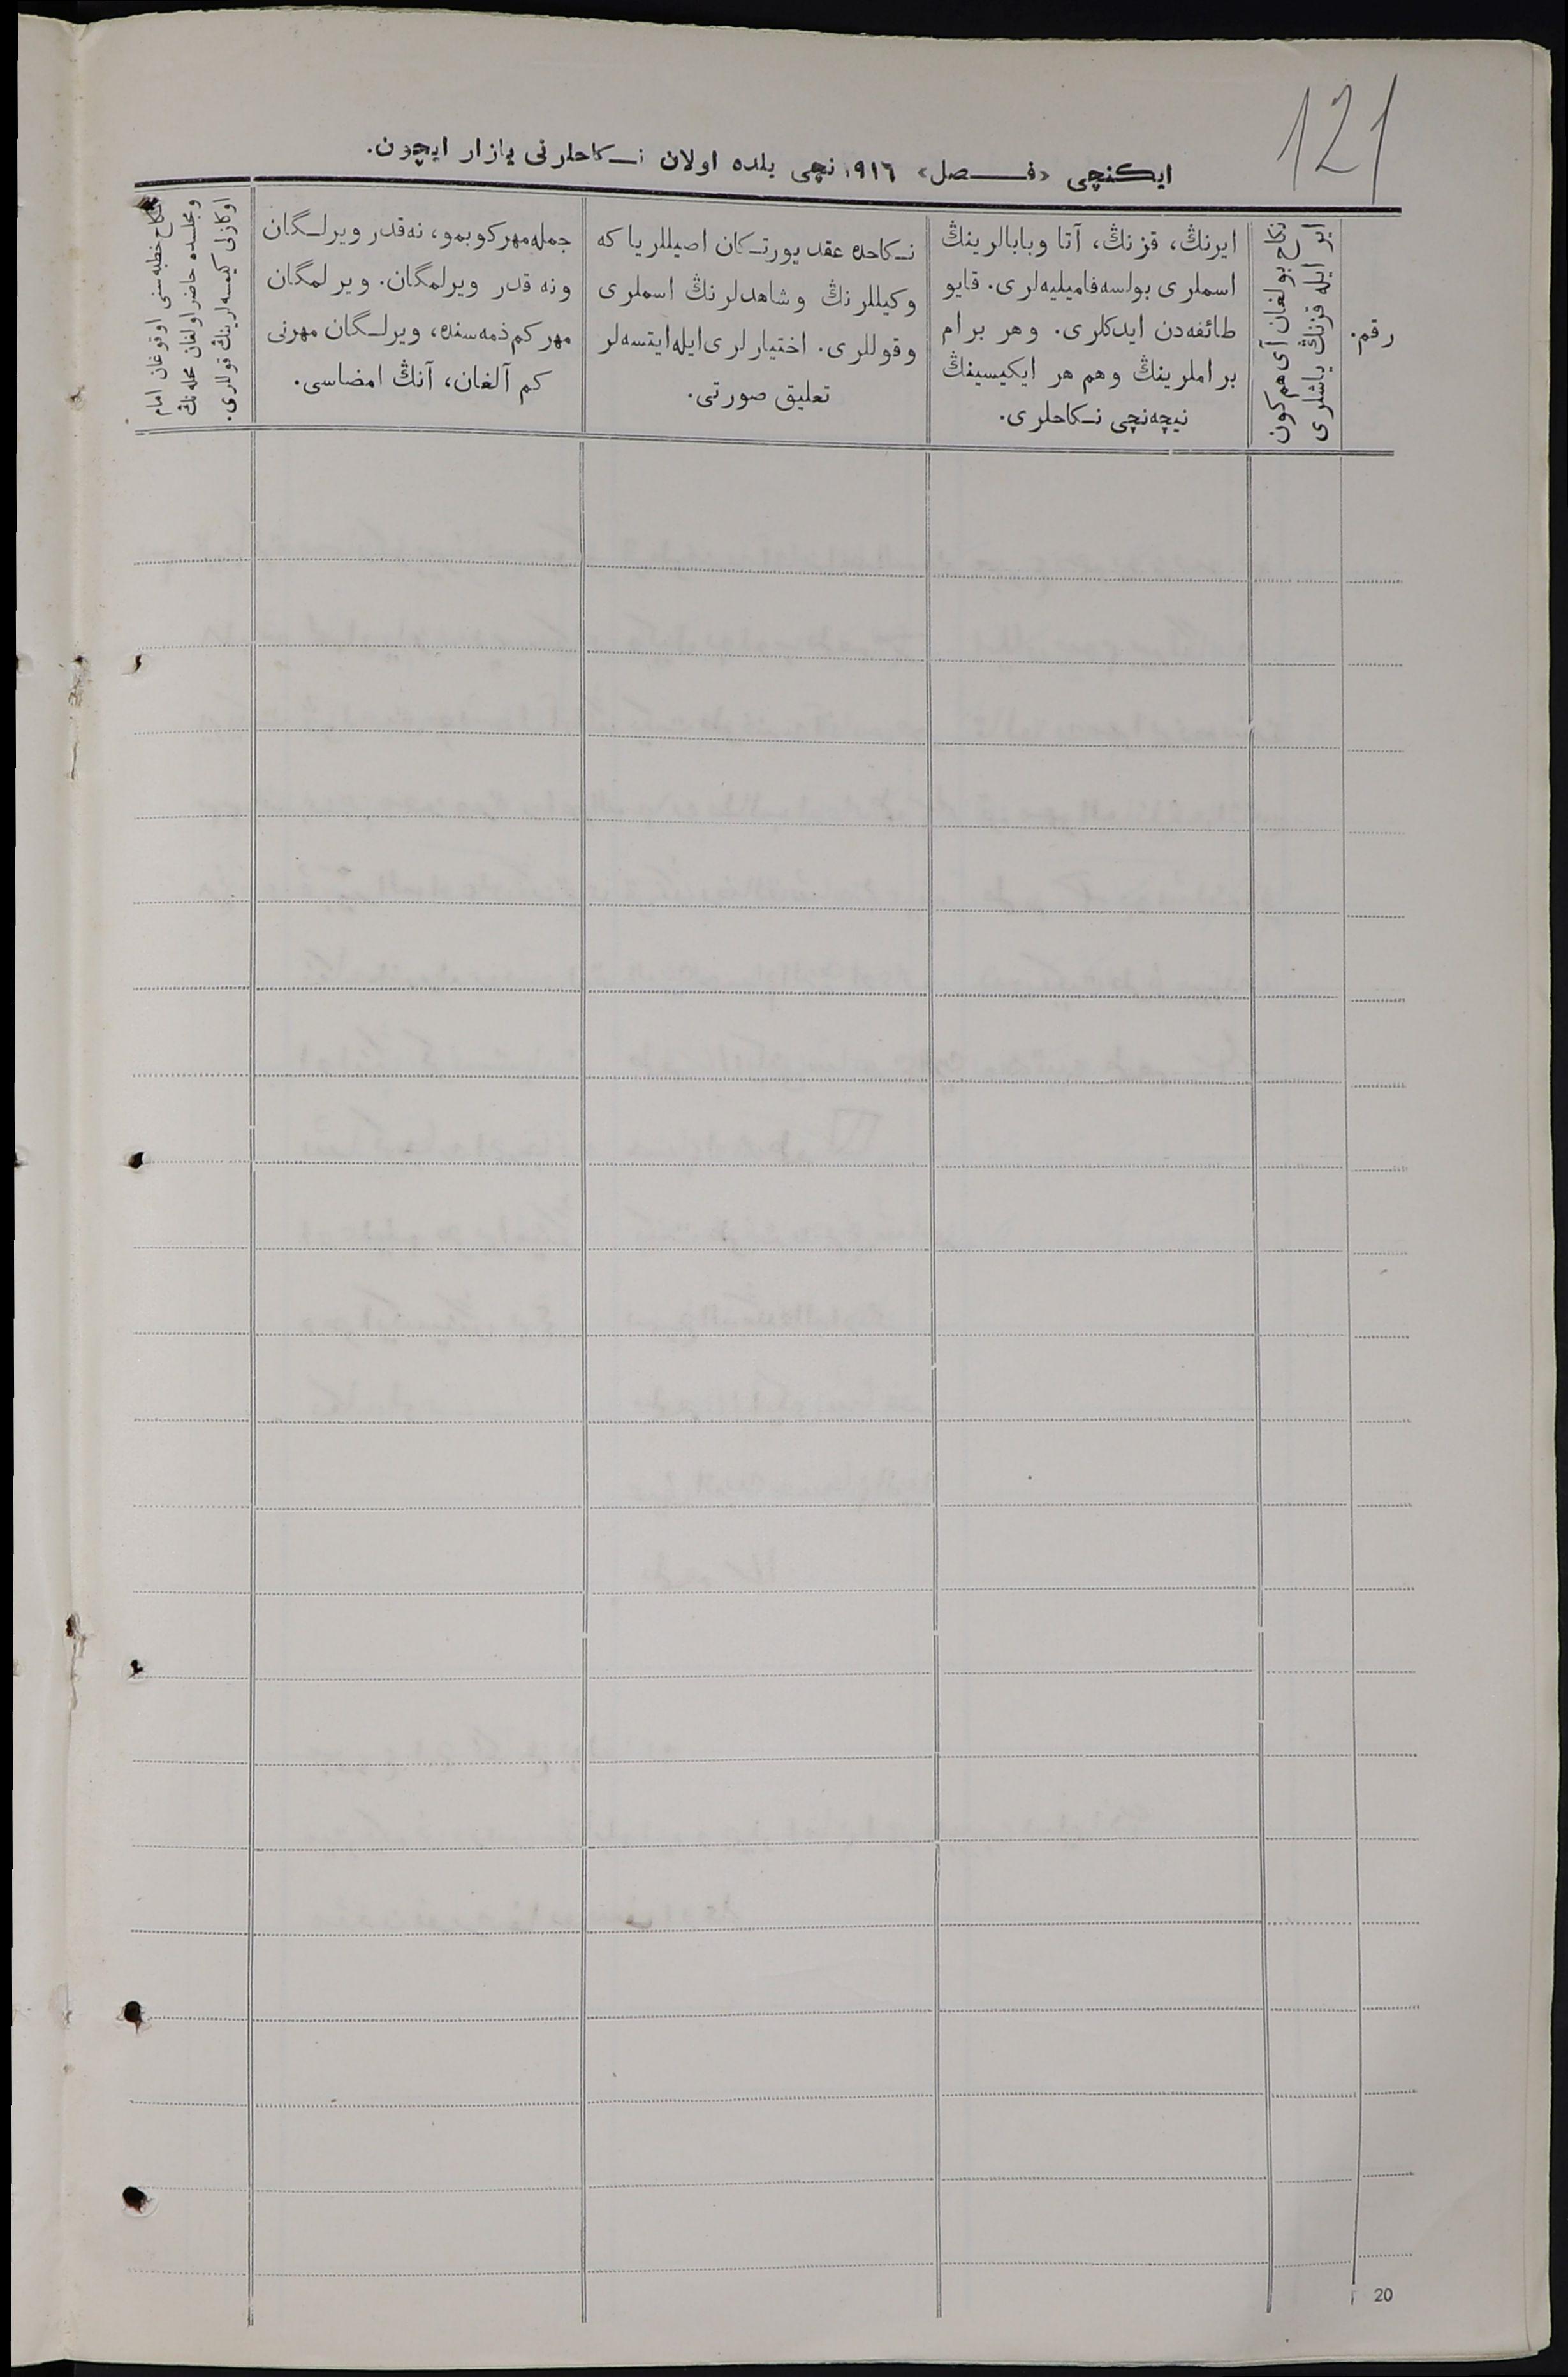 121
ایكنچی «فـــصل» ١٩١٦نچی یلده اولان نـكاحلرنی یازار ایچون.
رقم.
ایر ایله قزنڭ یاشلری
نكاح بولغان آی هم كون
ایرنڭ، قزنڭ، آتا وبابالرینڭ
اسملری بولسه فامیلیه‌لری. قایو
طائفه‌دن ایدكلری. وهر برام
براملرینڭ وهم هر ایكیسینڭ
نیچه‌نچی نـكاحلری.
نـكاحده عقد یورتـكان اصیللر یا كه
وكیللرنڭ وشاهدلرنڭ اسملری
وقوللری. اختیارلری ایله ایتسه‌لر
تعلیق صورتی.
جمله مهر كوبمو، نه‌قدر ویرلـگان
ونه قدر ویرلمگان. ویرلمگان
مهر كم ذمه‌سنده، ویرلـگان مهرنی
كم آلغان، آنڭ امضاسی.
نكاح خطبه‌سنی اوقوغان امام
ومجلسده حاضر اولغان محله‌نڭ
اوكازلی كیمسه‌لرینڭ قوللری.
20